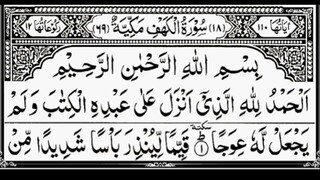 اٰیَاتُهَا ۱۱۰ (۱۸) سُوْرَةُ الْكَهْفِ مَكِّیَّةٌ (۶۹) رُكُوْعَاتُهَا ۱۲
بِسْمِ اللّٰهِ الرَّحْمٰنِ الرَّحِیْمِ
اَلْحَمْدُ لِلّٰهِ الَّذِیْۤ اَنْزَلَ عَلٰى عَبْدِهِ الْكِتٰبَ وَ لَمْ
یَجْعَلْ لَّهٗ عِوَجًا ؕ سکتة ۱ قَیِّمًا لِّیُنْذِرَ بَاْسًا شَدِیْدًا مِّنْ